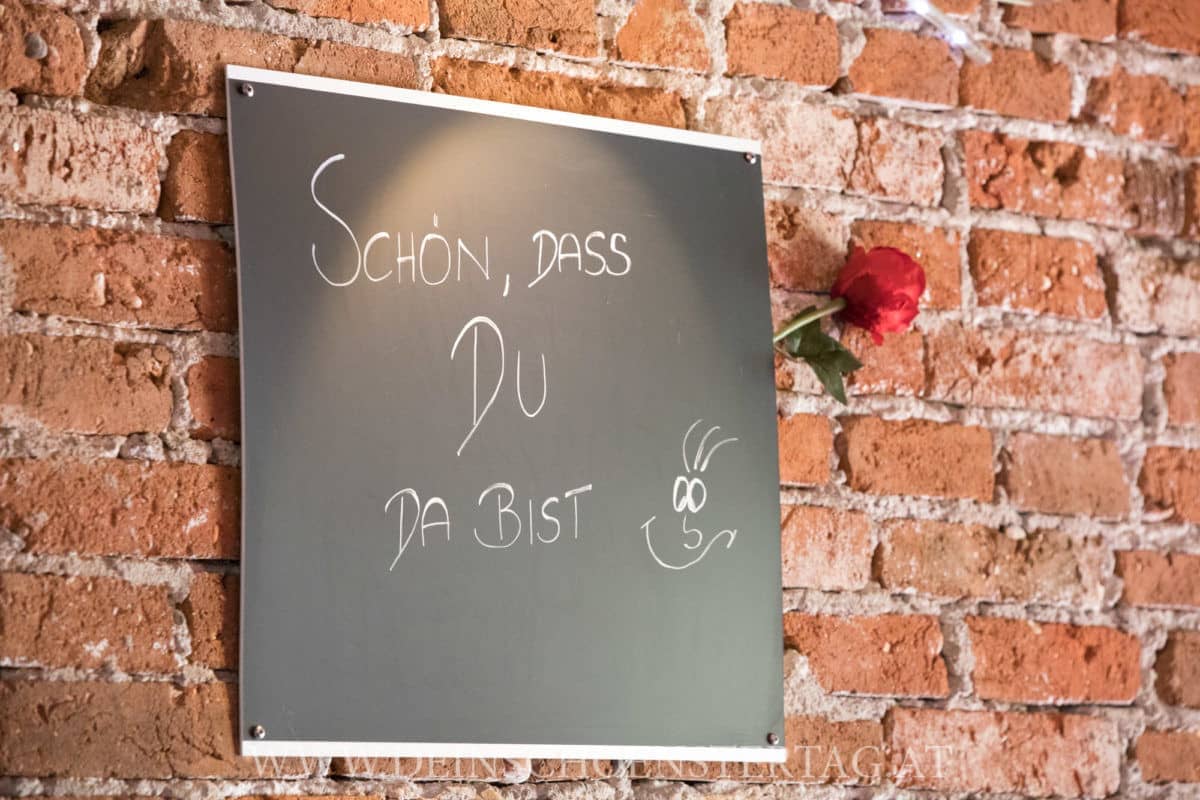 SCHÖN, DASS
DU
DA BIST
WWW.DEINSCHOENSTERTAG.AT